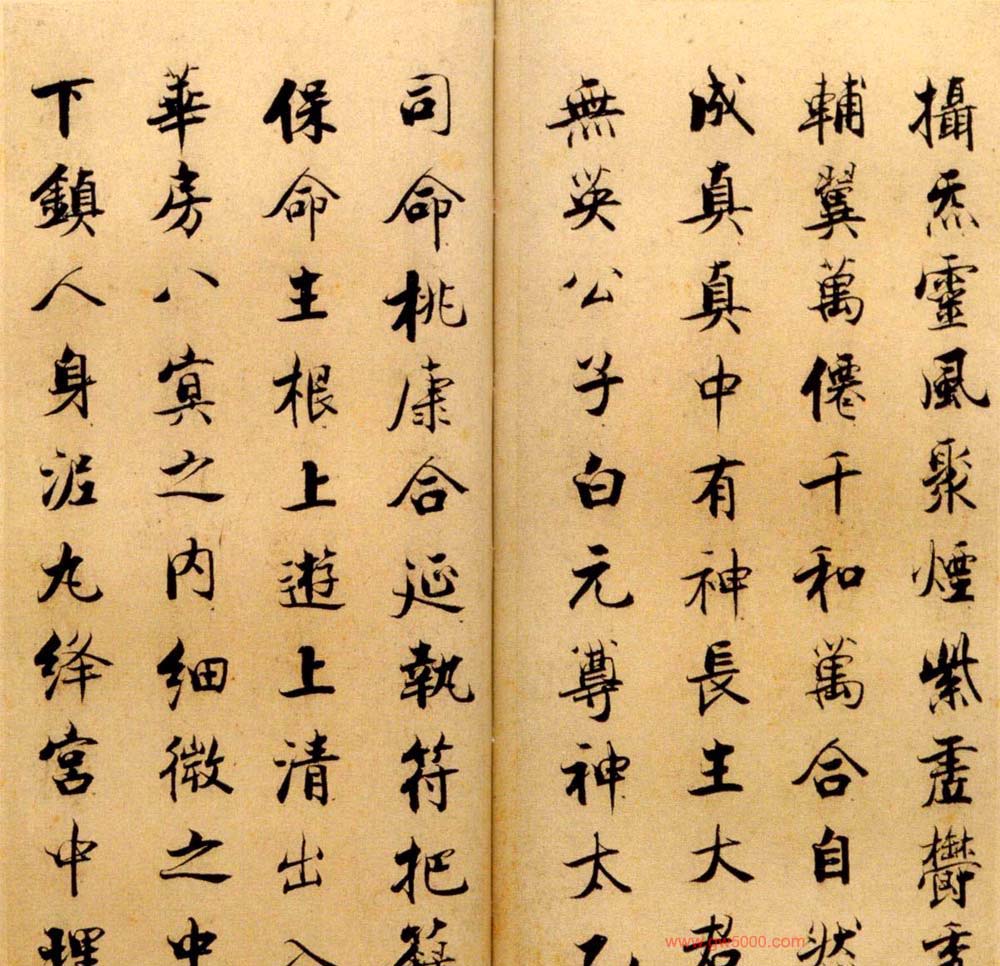 攝炁靈風聚煙紫虛欝秀
輔翼萬僊千和萬合自然
成真真中有神長生大君
無英公子白元尊神太乙
司命桃康合延執符把籙
保命主根上遊上清出入
華房八寞之内细微之中
下鎮人身泥丸绛宮中理
www.yw5000.com